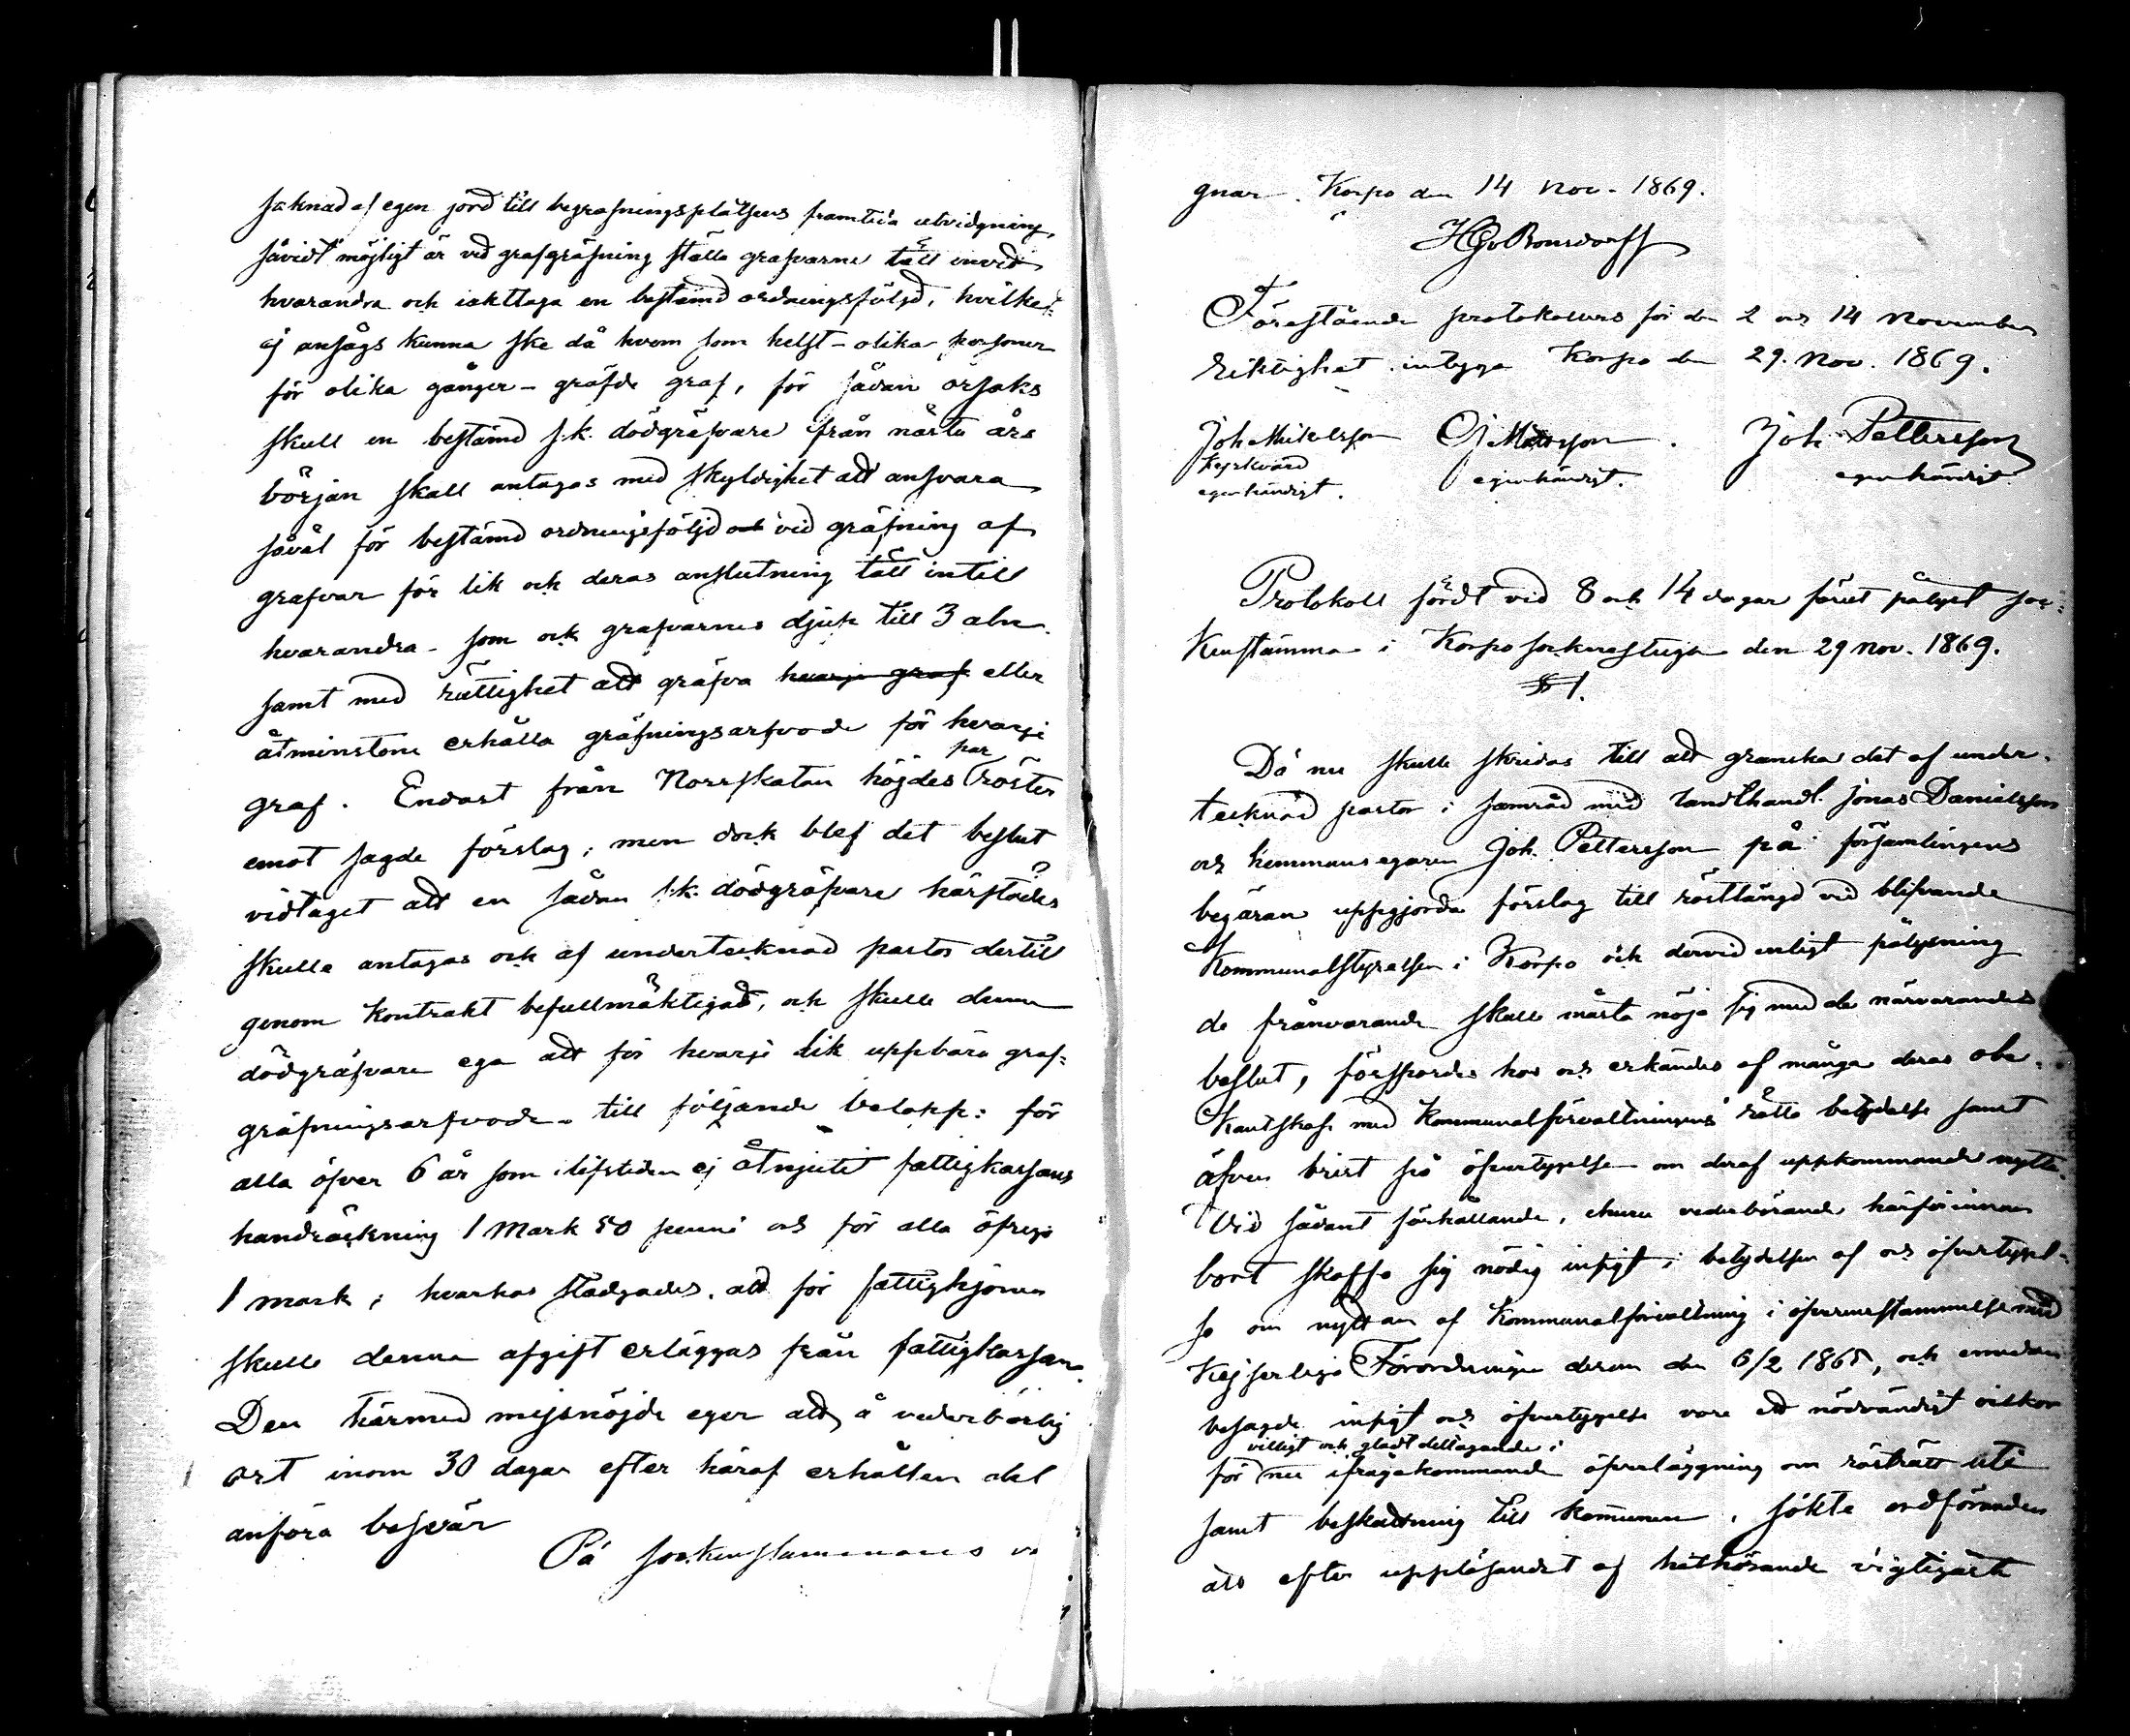 saknad af egen jord till begrafningsplatsens framtida utvidgning,
såvidt möjligt är vid grafgräfning ställa grafvarne tätt invid
hvarandra och iakttaga en bestämd ordningsföljd, hvilket
ej ansågs kunna ske då hvem som helst - olika personer
för olika gånger - gräfde graf, för sådan orsaks
skull en bestämd s.k. dödgräfvare från nästa års
början skall antagas med skyldighet att ansvara
såväl för bestämd ordningsföljd och vid gräfning af
grafvar för lik och deras anslutning tätt intill
hvarandra - som och grafvarnes djup till 3 aln
samt med rättighet att gräfva hvarje graf eller
åtminstone erhålla gräfningsarfvode för hvarje
graf. Endast från Norrskatan höjdes par röster
emot sagde förslag; men dock blef det beslut
vidtaget att en sådan s.k. dödgräfvare härstädes
skulle antagas och af undertecknad pastor dertill
genom kontrakt befullmäktigad, och skulle denne
dödgräfvare ega att för hvarje lik uppbära graf=
gräfningsarfvode - till följande belopp: för
alla öfver 6 år som i lifstiden ej åtnjutit fattigkassans
handräckning 1 Mark 50 penni och för alla öfriga
1 mark; hvarhos stadgades, att för fattighjonen
skulle denna afgift erläggas från fattigkassan.
Den härmed missnöjde eger att å vederbörlig
ort inom 30 dagar efter häraf erhållen del
anföra besvär
På sockenstämmans
gnar. Korpo den 14 Nov. 1869.
H G v Bonsdorff
Förestående protokollers för den 2 och 14 November
riktighet intyga Korpo den 29. Nov. 1869.
Joh Mickelsson Mattsson. Joh. Pettersson
Kyrkvärd
egenhändigt. egenhändigt. egenhändigt
Protokoll fördt vid 8 och 14 dagar förut pålyst soc=
kenstämma i Korpo sockenstuga den 29 nov. 1869.
§ 1.
Då nu skulle skridas till att granska det af under-
tecknad pastor i samråd med landthandl. Jonas Danielsson
och hemmansegaren Joh. Pettersson på församlingens
begäran uppgjorda förslag till röstlängd vid blifvande
Kommunalstyrelsen i Korpo och dervid enligt pålysning
de frånvarande skulle måsta nöja sig med de närvarandes
beslut, förspordes hos och erkändes af många deras obe-
kantskap med Kommunalförvaltningens rätta betydelse samt
äfven brist på öfvertygelse om deraf uppkommande nytta.
Vid sådant förhållande, ehuru vederbörande härförinnan
bort skaffa sig nödig insigt i betydelsen af och öfvertygel-
se om nyttan af Kommunalförvaltning i öfverensstämmelse med
Kejserliga Förordningen derom den 6/2 1865, och emedan
besagde insigt och öfvertygelse vore ett nödvändigt vilkor
villigt och gladt deltagande i
för nu ifrågakommande öfverläggning om rösträtt uti
samt beskattning till kommunen, sökte ordföranden
att efter uppläsandet af hithörande vigtigaste